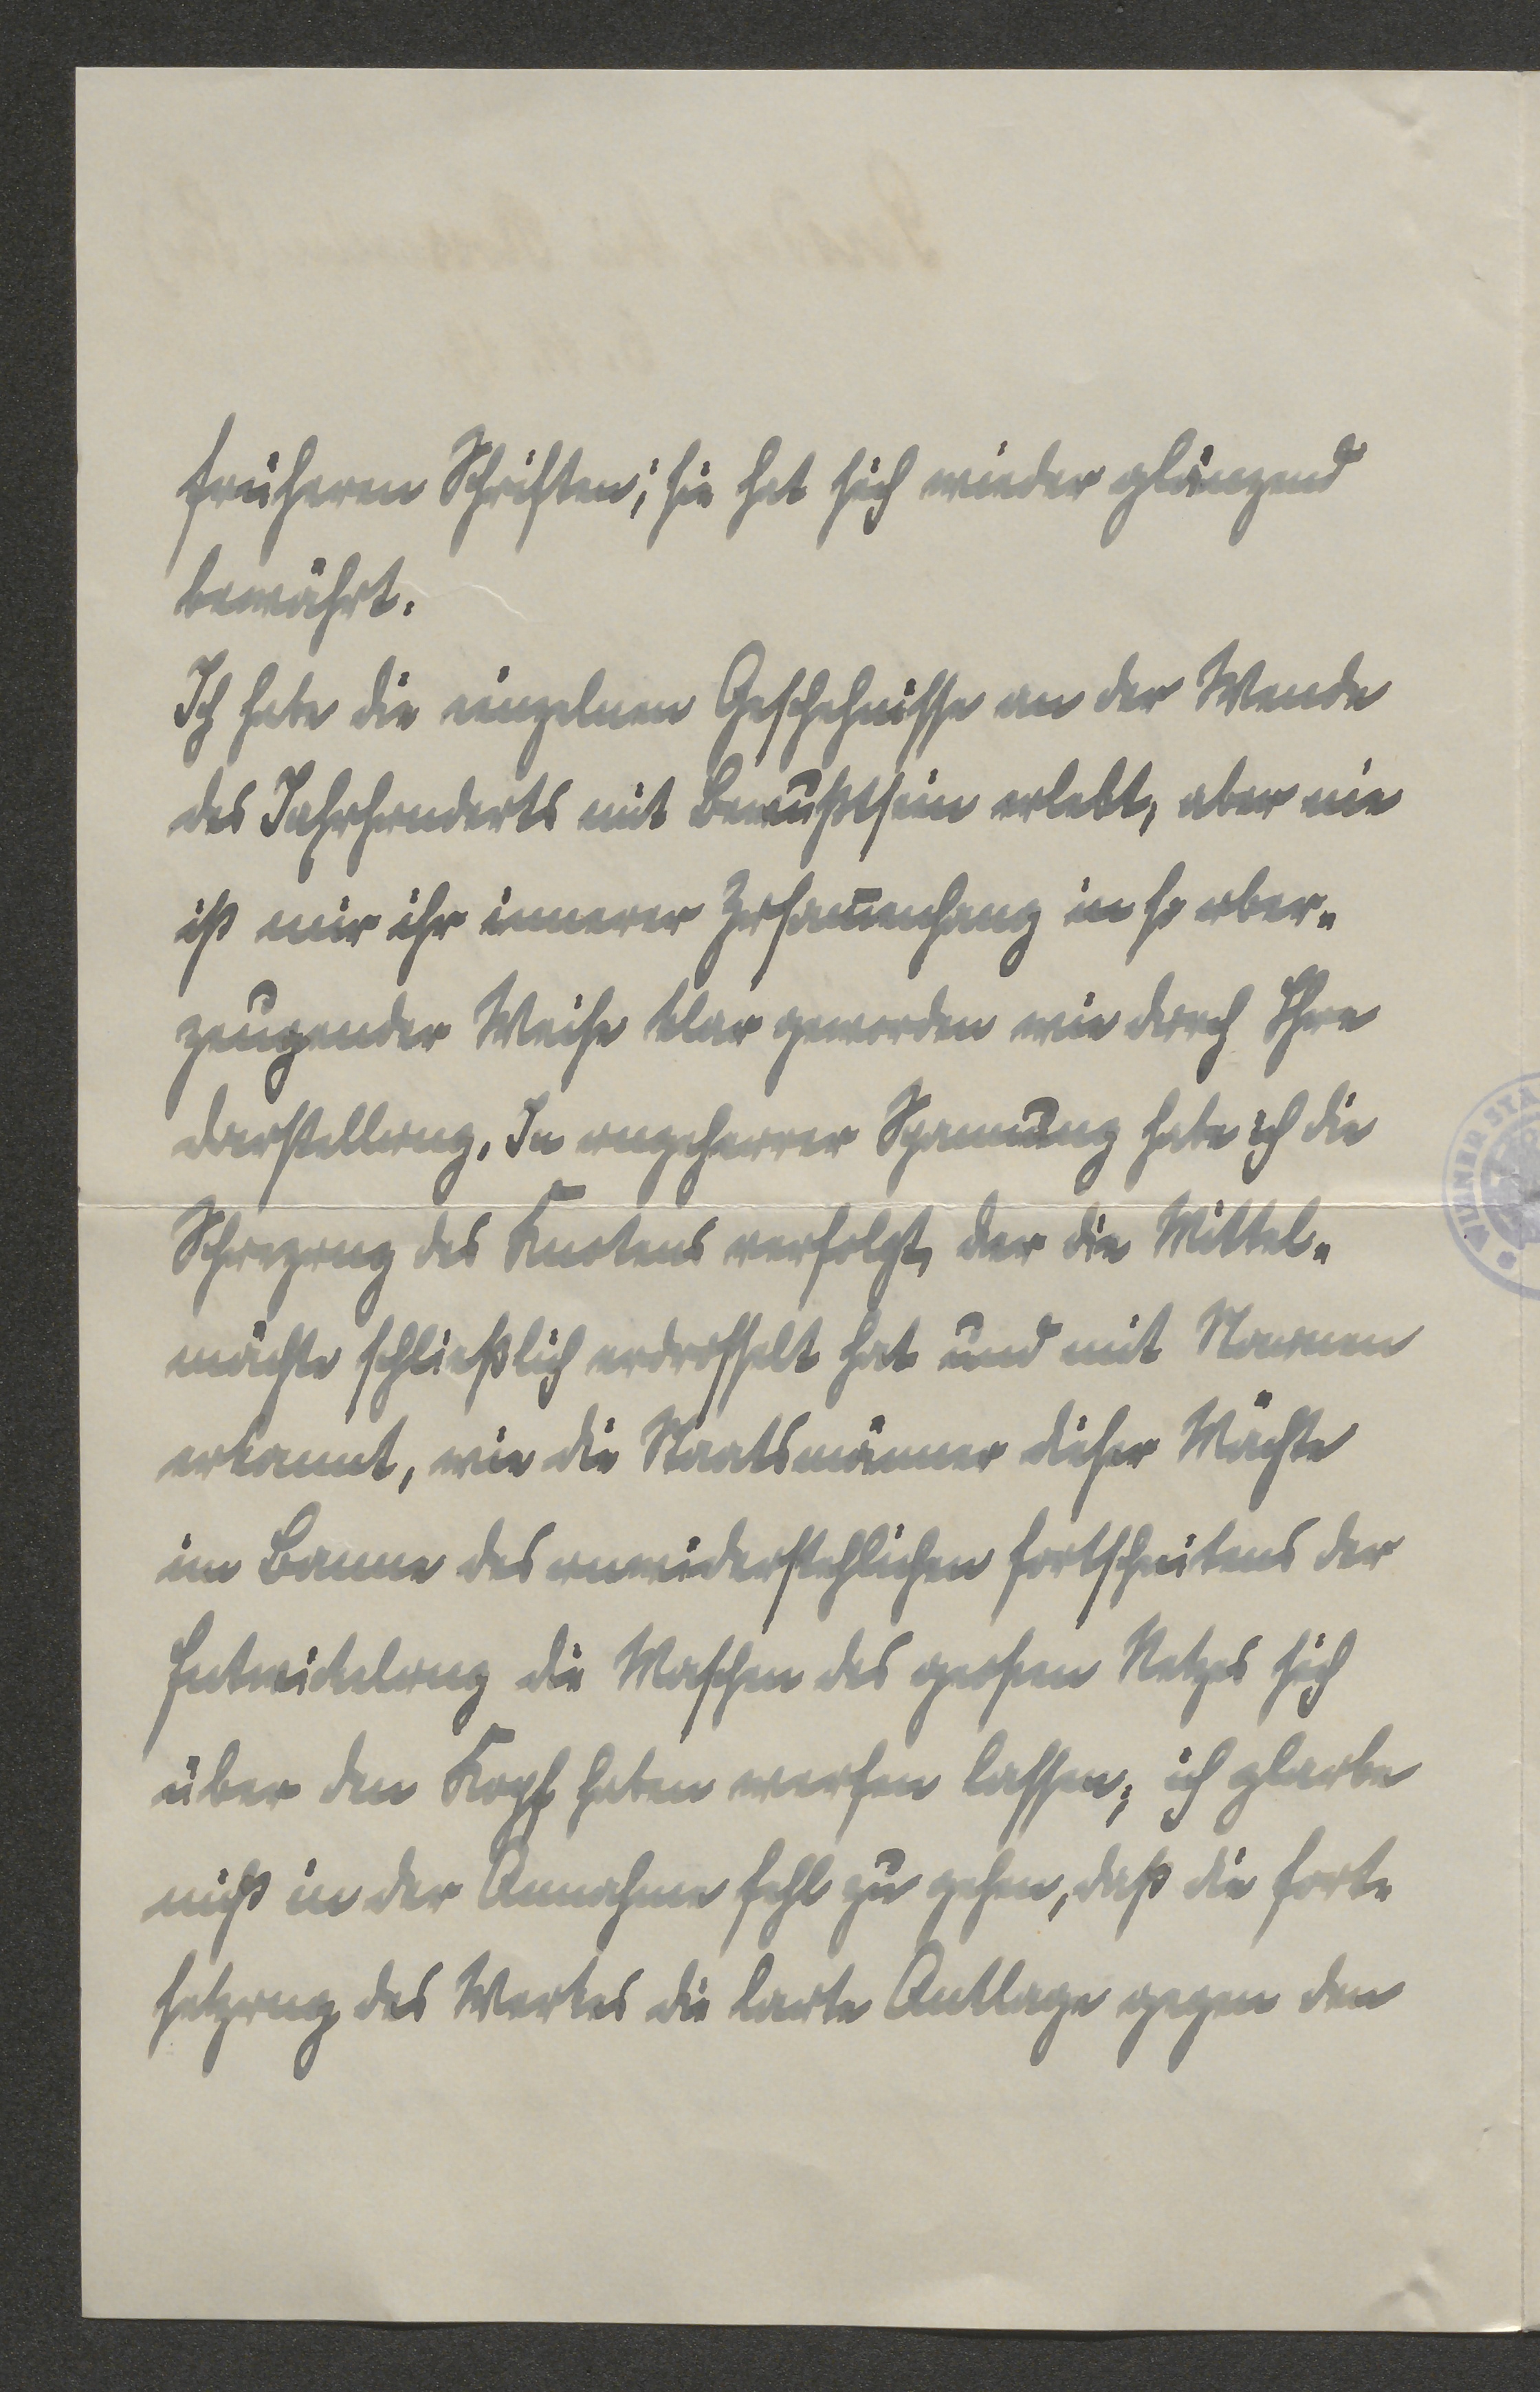 früheren Schriften; sie hat sich wieder glänzend
bewährt.
Ich habe die einzelnen Geschehnisse an der Wende
des Jahrhunderts mit Bewußtsein erlebt, aber nie
ist mir ihr innerer Zusam̅enhang in so über-
zeugender Weise klar geworden wie durch Ihre
Darstellung. In ungeheurer Spannung habe ich die
Schürzung des Knotens verfolgt, der die Mittel-
mächte schließlich erdrosselt hat und mit Staunen
erkannt, wie die Staatsmänner dieser Mächte
im Banne des unwiderstehlichen Fortschreitens der
Entwickelung die Maschen des großen Netzes sich
über den Kopf haben werfen lassen; ich glaube
nicht in der Annahme fehl zu gehen, daß die Fort-
setzung des Werkes die laute Anklage gegen den
WIENER STA